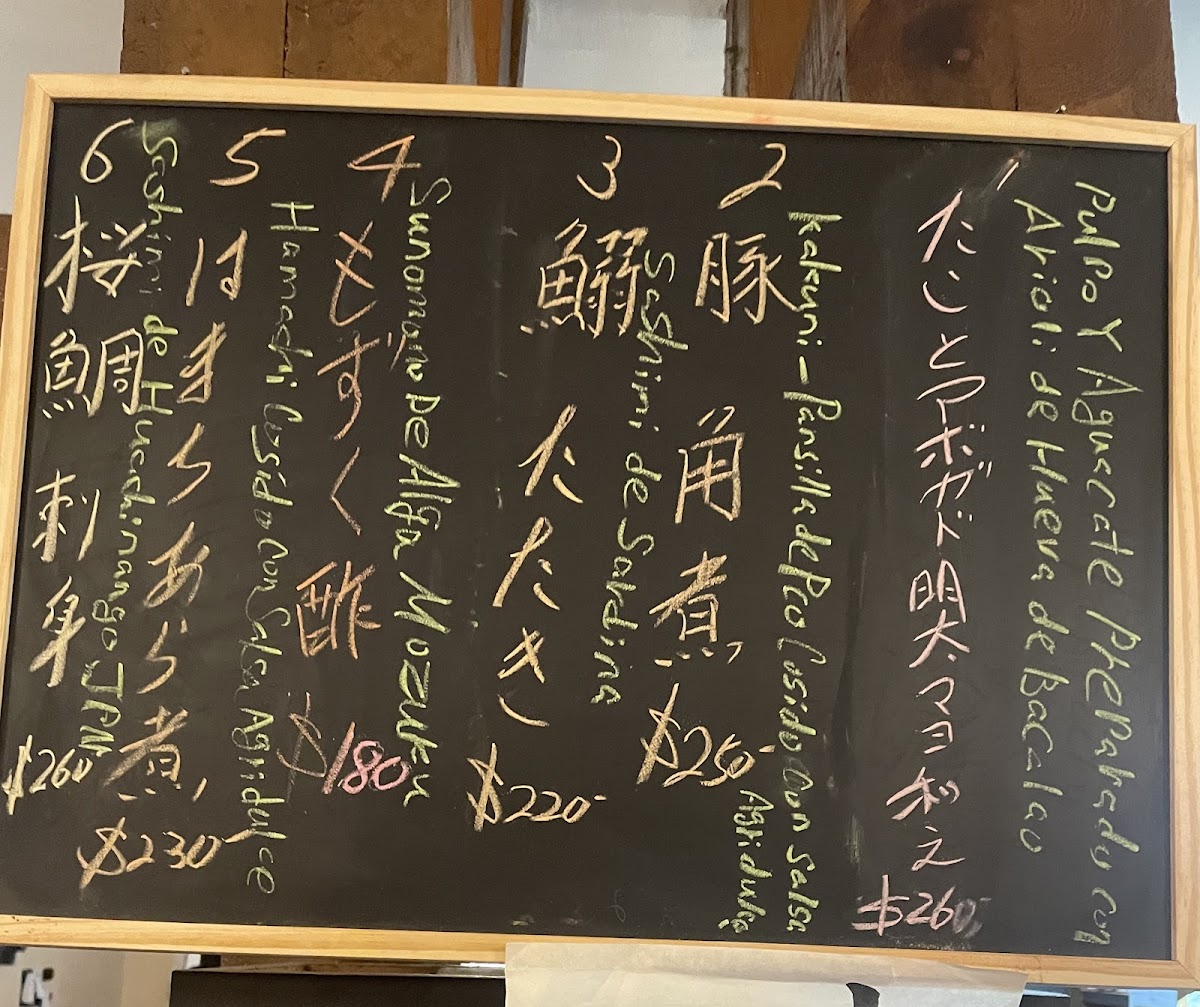 Pulpo Y Aguacate Pherparado con
Ahioli de Hueva de Bacalao
1 たことアボガド明太マヨ和え $260-
Kakuni-Pansilla de Peo Cosido con Salsa
Agridulse
2 豚 角煮 $250-
Sashimi de Sardina
3 鰯 たたき $220-
Sunomono De Alga Mozuku
4 もずく酢 $180
Hamachi Cosido con Salsa Agridulce
5 はまちあら煮 $230-
Sashimi de Huachinango JPN
6 桜鯛 刺身 $260-